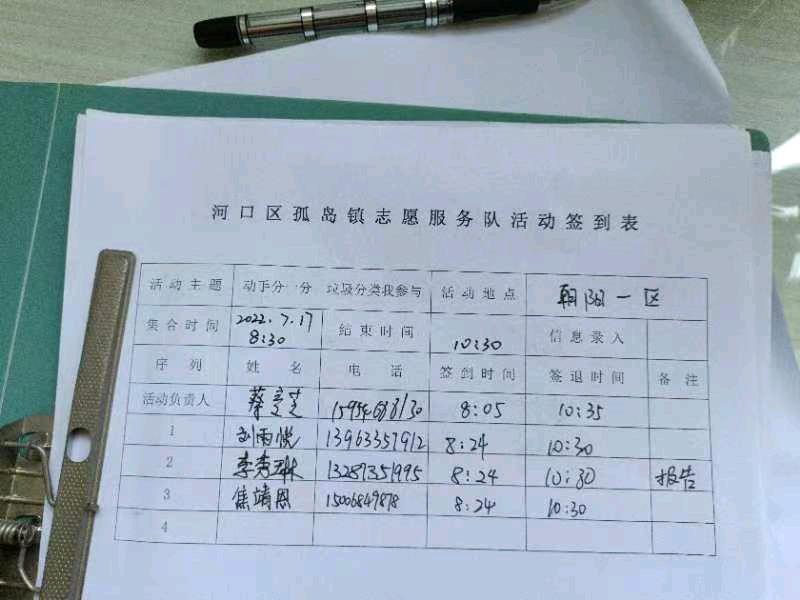 河口区孤岛镇志愿服务队活动签到表
活动主题 动手分一分 垃圾分类我参与 活动地点 朝阳一区
集合时间 2022.7.17 8:30 结束时间 10:30 信息录入
序列 姓名 电话 签到时间 签退时间 备注
活动负责人 蔡 芝 8:05 10:35
1 刘雨悦 13963357912 8:24 10:30
2 李秀琳 13287351995 8:24 10:30 报告
3 焦靖恩 15006849878 8:24 10:30
4